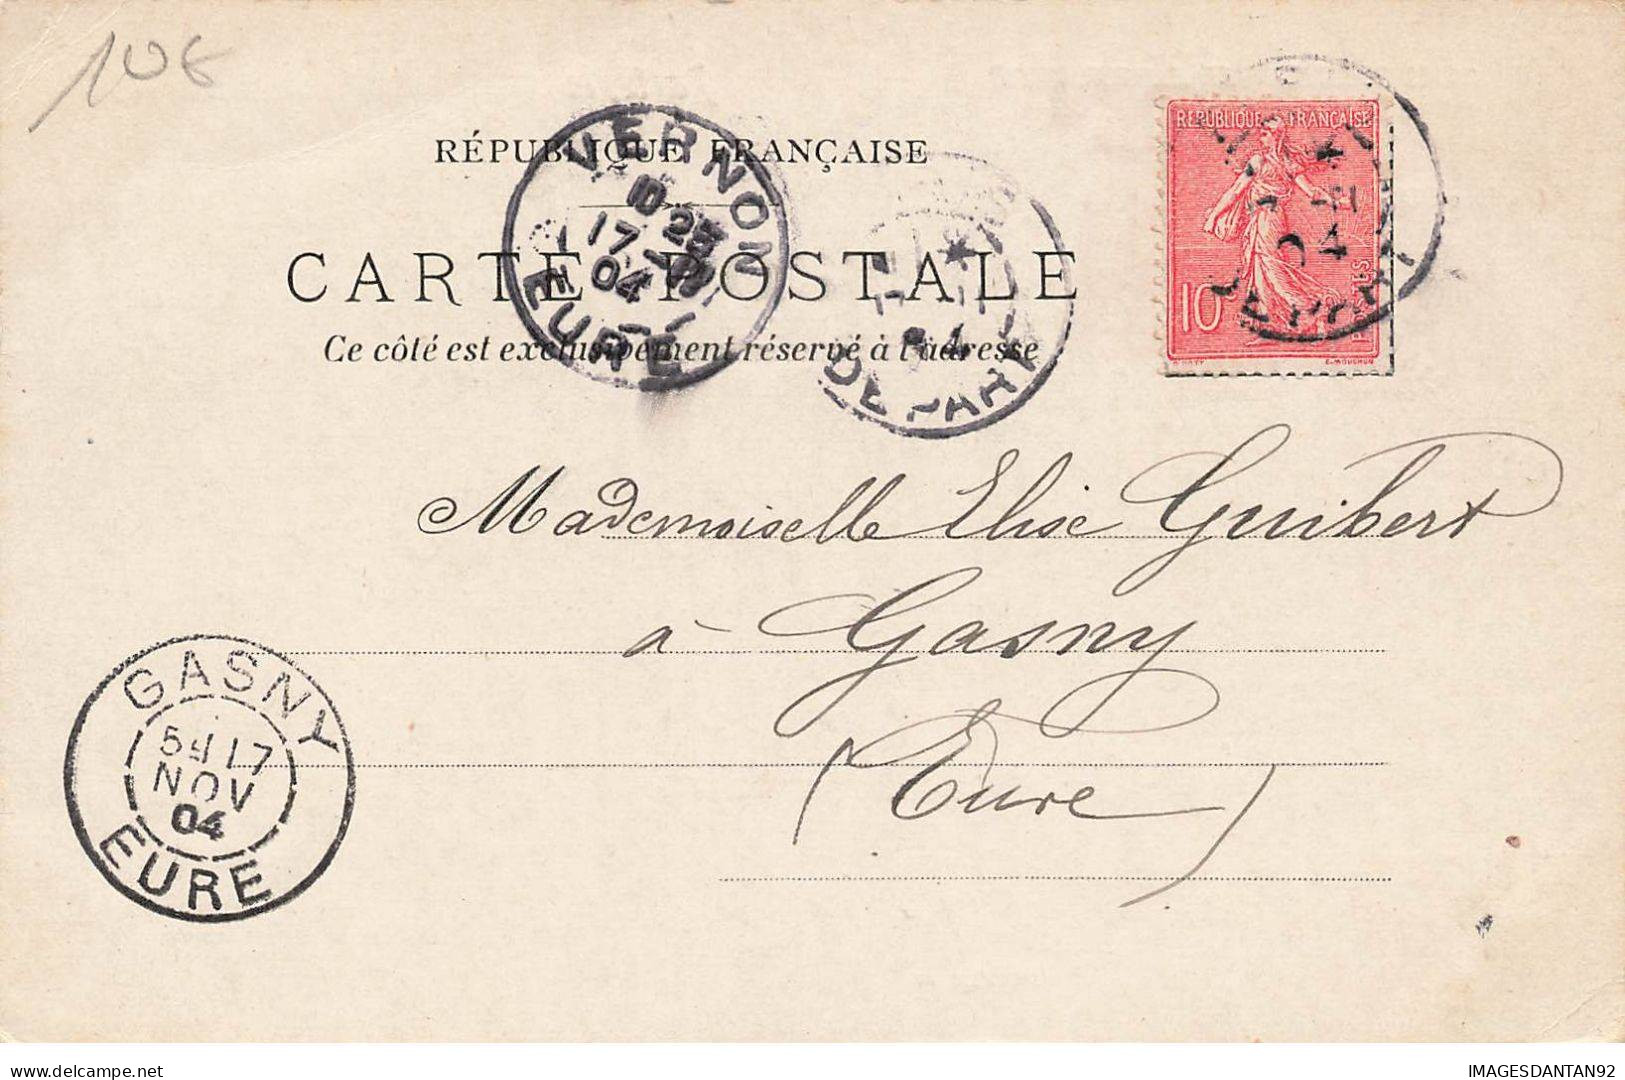 10€
RÉPUBLIQUE FRANÇAISE
CARTE POSTALE
Ce côté est exclusivement réservé à l'adresse
VERNON
10 25
17
04
EURE
DEPART
REPUBLIQUE FRANÇAISE
10
POSTES
Mademoiselle Elise Guibert
à Gasny
(Eure)
GASNY
5H 17
NOV
04
EURE
IMAGESDANTAN92